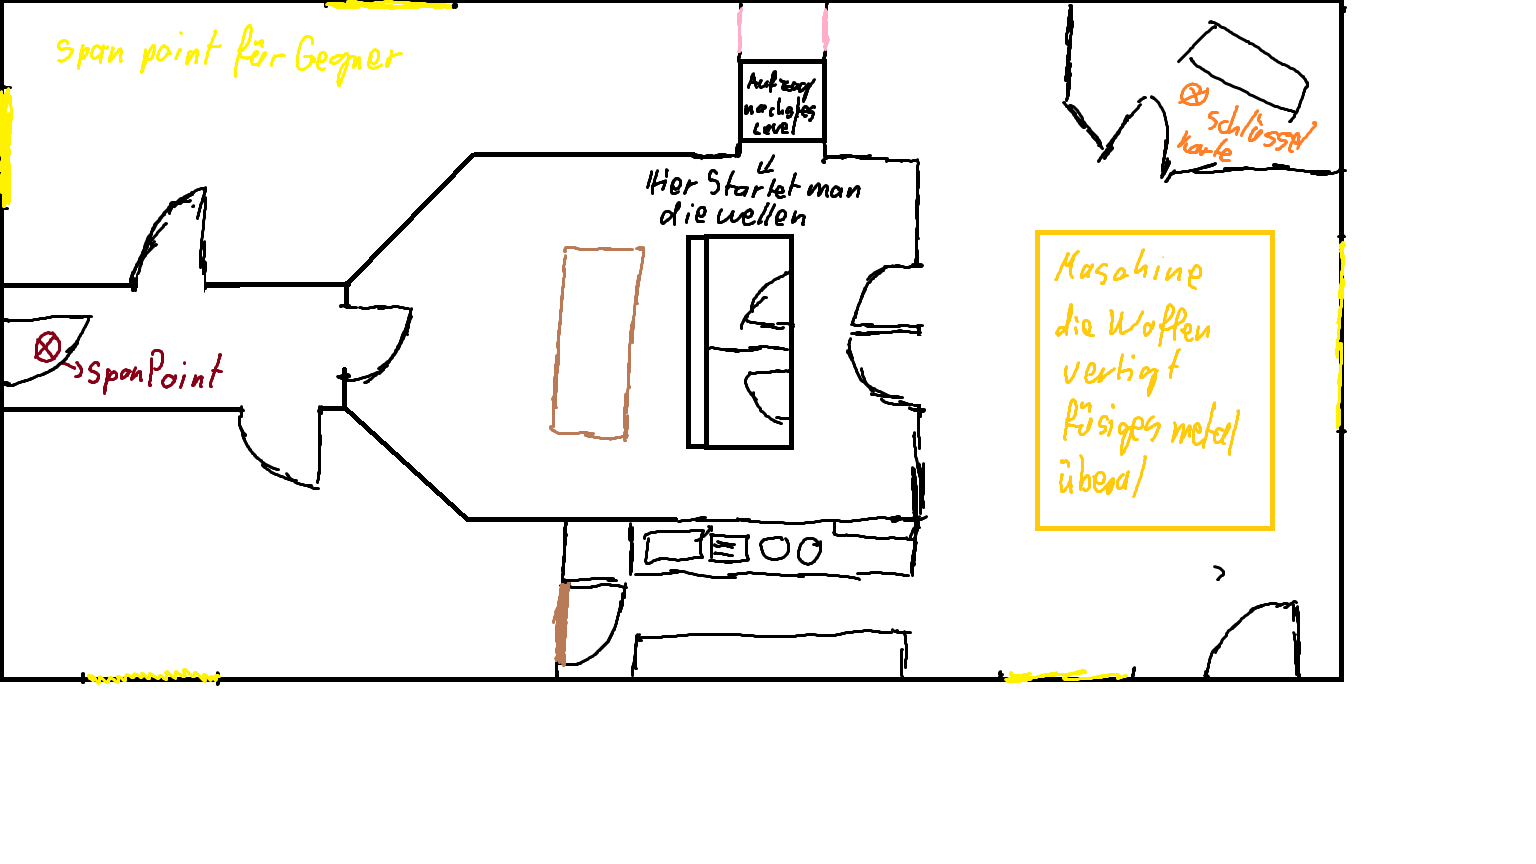 Span point für Gegner
Aufzug
nächstes
Level
Hier Startet man
die wellen
Schlüssel
Karte
Maschine
die Waffen
vertigt
füsiges metal
überal
SpanPoint